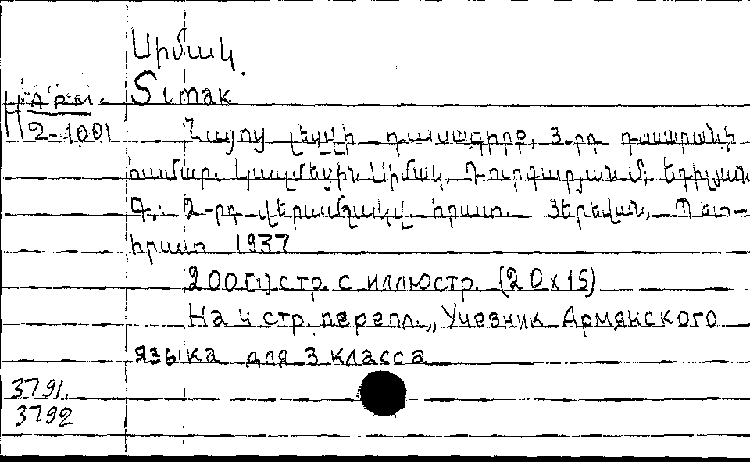 Սիմակ.
Simak
2-1001
Հայոց լեզվի դասագիրք, 3-րդ դասարանի
համար. Կազմեցին Սիմակ, Դուրգարյան Մ, Եղիկյան
Գ.: 2-րդ վերամշակվ. հրատ. Յերեվան, Պետ-
հրատ 1937
200[1] стр. с иллюстр. (20x15)
На 4 стр. перепл.,, Учебник Армянского
языка для 3 класса
3791.
3792